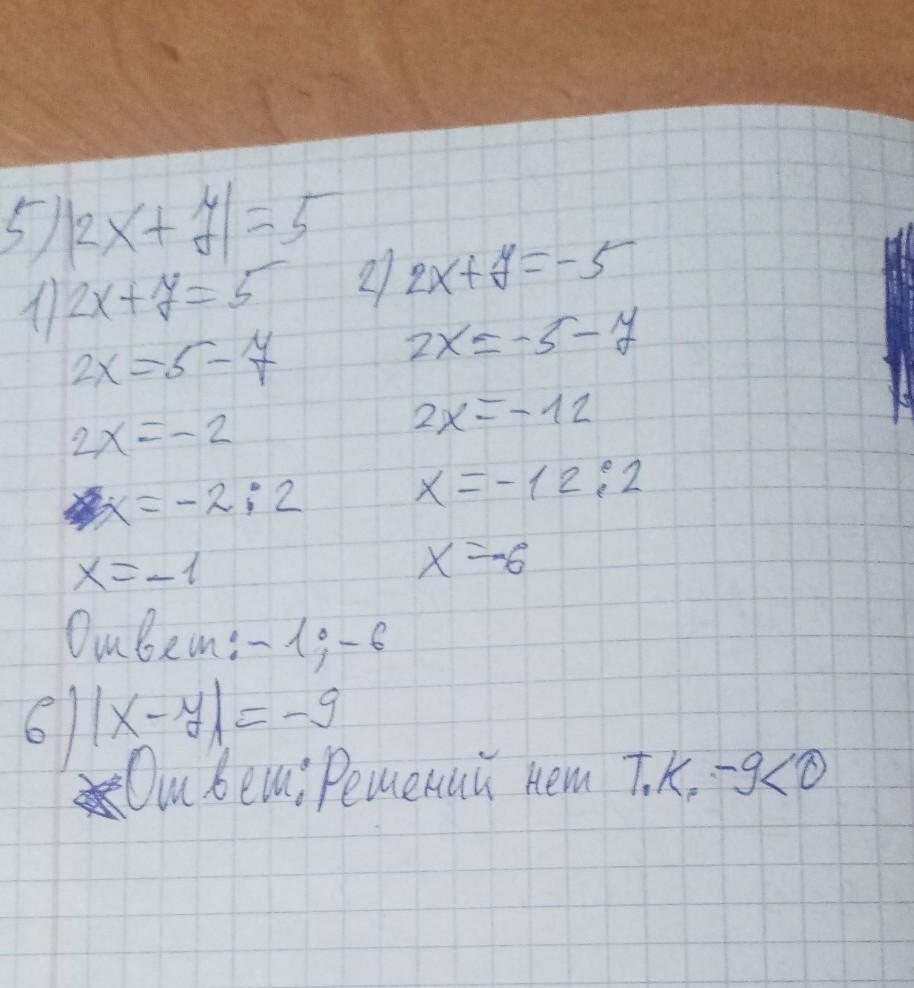 5) |2x + 7| = 5
1) 2x + 7 = 5
2x = 5 - 7
2x = -2
x = -2 : 2
x = -1
2) 2x + 7 = -5
2x = -5 - 7
2x = -12
x = -12 : 2
x = -6
Ответ: -1; -6
6) |x - 7| = -9
Ответ: Решений нет т.к. -9<0